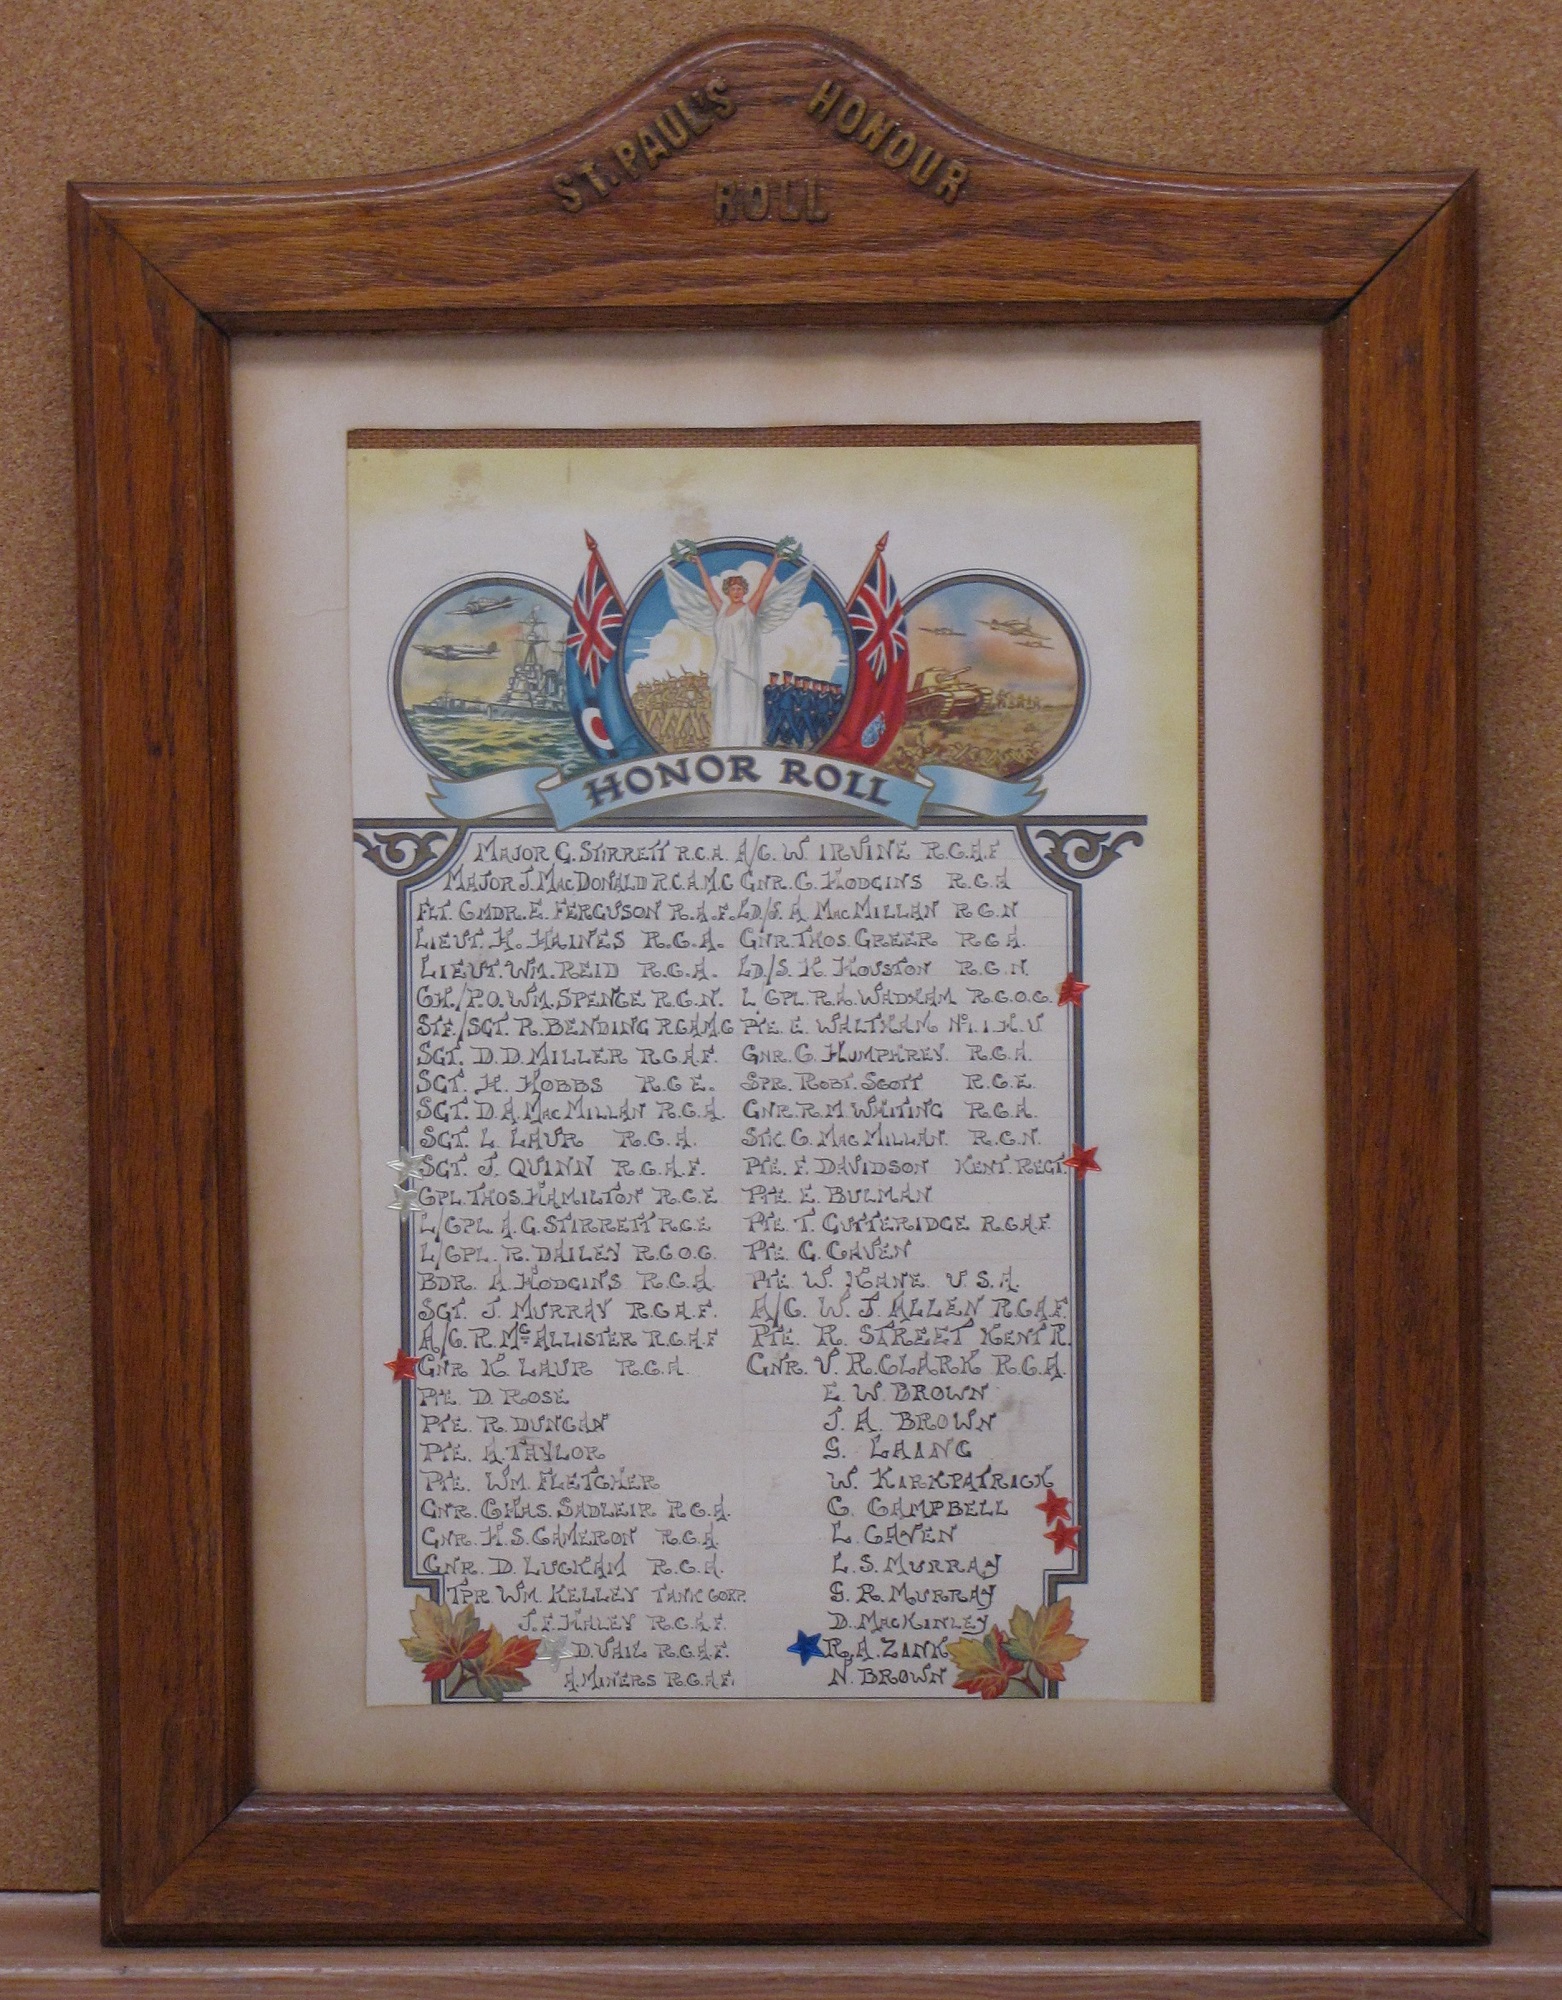 ST. PAUL'S HONOUR
ROLL
HONOR ROLL
MAJOR C. STIRRETT R.C.A.
MAJOR J. MACDONALD R.C.A.M.C
FLT. CMDR. E. FERGUSON R.A.F.
LIEUT. H. HAINES R.C.A.
LIEUT. WM. REID R.C.A.
CH./P.O. WM. SPENCE R.C.N.
STF./SGT. R. BENDING R.C.A.M.C
SGT. D. D. MILLER R.C.A.F.
SGT. H. HOBBS R.C.E.
SGT. D. A. MACMILLAN R.C.A.
SGT. L. LAUR R.C.A.
SGT. J. QUINN R.C.A.F.
CPL. THOS. HAMILTON R.C.E
L/CPL A. C. STIRRETT R.C.E
L/CPL. R. DAILEY R.C.O.C.
BDR. A. HODGINS R.C.A.
SGT. J. MURRAY R.C.A.F.
A/C. R. MCALLISTER R.C.A.F
GNR K. LAUR R.C.A.
PTE. D. ROSE
PTE. R. DUNCAN
PTE. A. TAYLOR
PTE. WM. FLETCHER
GNR. CHAS. SADLEIR R.C.A.
GNR. H. S. CAMERON R.C.A.
GNR. D. LUCKAM R.C.A.
TPR. WM. KELLEY TANK CORP.
J. F. HALEY R.C.A.F.
D. VAIL R.C.A.F.
A. MINERS R.C.A.F.
A/C. W. IRVINE R.C.A.F
GNR. C. HODGINS R.C.A
LD./S. A. MACMILLAN R.C.N
GNR. THOS. GREER R.C.A.
LD./S. K. HOUSTON R.C.N.
L/CPL. R. A. WADHAM R.C.O.C.
PTE. E. WALTHAM No. 1. H. U
GNR. C. HUMPHREY. R.C.A.
SPR. ROBT. SCOTT R.C.E.
GNR. R. M. WHITING R.C.A.
STK. G. MACMILLAN. R.C.N.
PTE. F. DAVIDSON KENT. REGT.
PTE. E. BULMAN
PTE. T. GUTTERIDGE R.C.A.F.
PTE. C. CAVEN
PTE. W. KANE U.S.A.
A/C. W. J. ALLEN R.C.A.F.
PTE. R. STREET KENT R.
GNR. V. R. CLARK R.C.A.
E. W. BROWN
J. A. BROWN
S. LAING
W. KIRKPATRICK
C. CAMPBELL
L. CAVEN
L. S. MURRAY
S. R. MURRAY
D. MACKINLEY
R. A. ZINK
N. BROWN